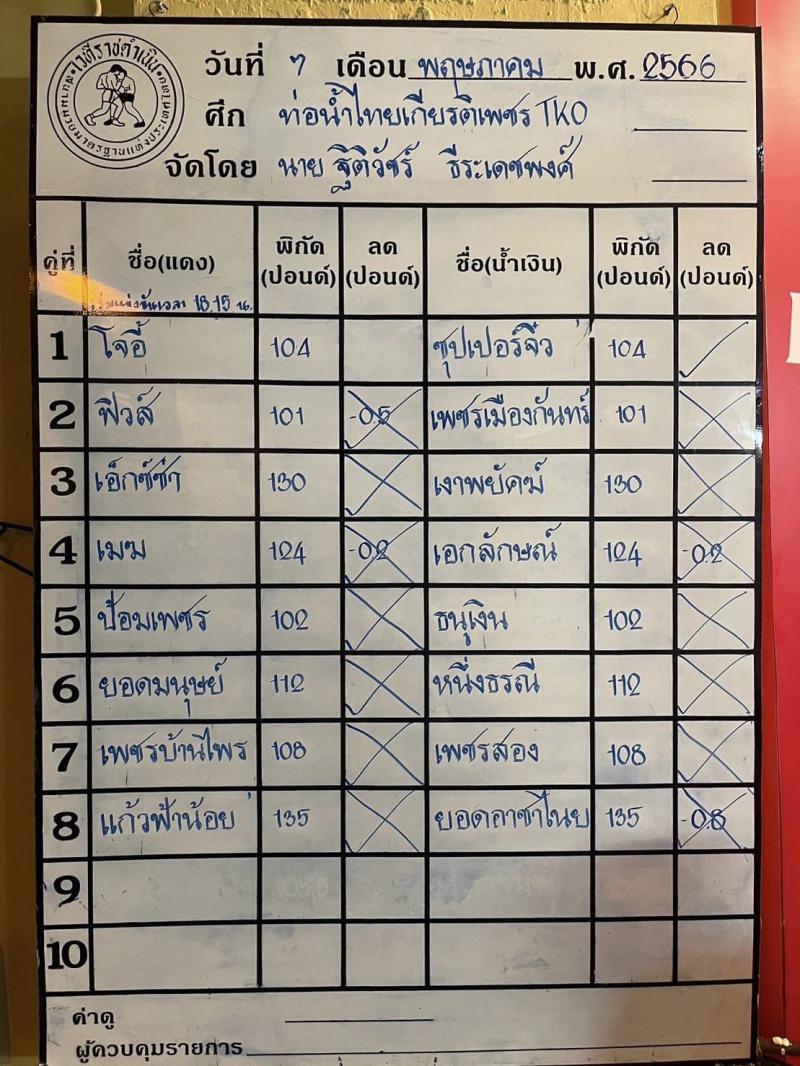 เวทีราชดำเนิน
สนามมวยมาตรฐานแห่งประเทศไทย
วันที่ ๗ เดือน พฤษภาคม พ.ศ. 2566
ศึก ท่อน้ำไทยเกียรติเพชร TKO
จัดโดย นาย ฐิติวัชร์ ธีระเดชพงศ์
คู่ที่ ชื่อ(แดง) พิกัด (ปอนด์) ลด (ปอนด์) ชื่อ(น้ำเงิน) พิกัด (ปอนด์) ลด (ปอนด์)
เริ่มแข่งขันเวลา 18.15 น.
1 โจอี้ 104 ซุปเปอร์จิ๋ว 104
2 ฟิวส์ 101 -0.5 เพชรเมืองกันทร์ 101
3 เอ็กซ์ซ่า 130 เงาพยัคฆ์ 130
4 เมฆ 124 -0.2 เอกลักษณ์ 124 -0.2
5 ป้อมเพชร 102 ธนูเงิน 102
6 ยอดมนุษย์ 112 หนึ่งธรณี 112
7 เพชรบ้านไพร 108 เพชรสอง 108
8 แก้วฟ้าน้อย 135 ยอดอาชาไนย 135 -0.8
9
10
ค่าดู
ผู้ควบคุมรายการ